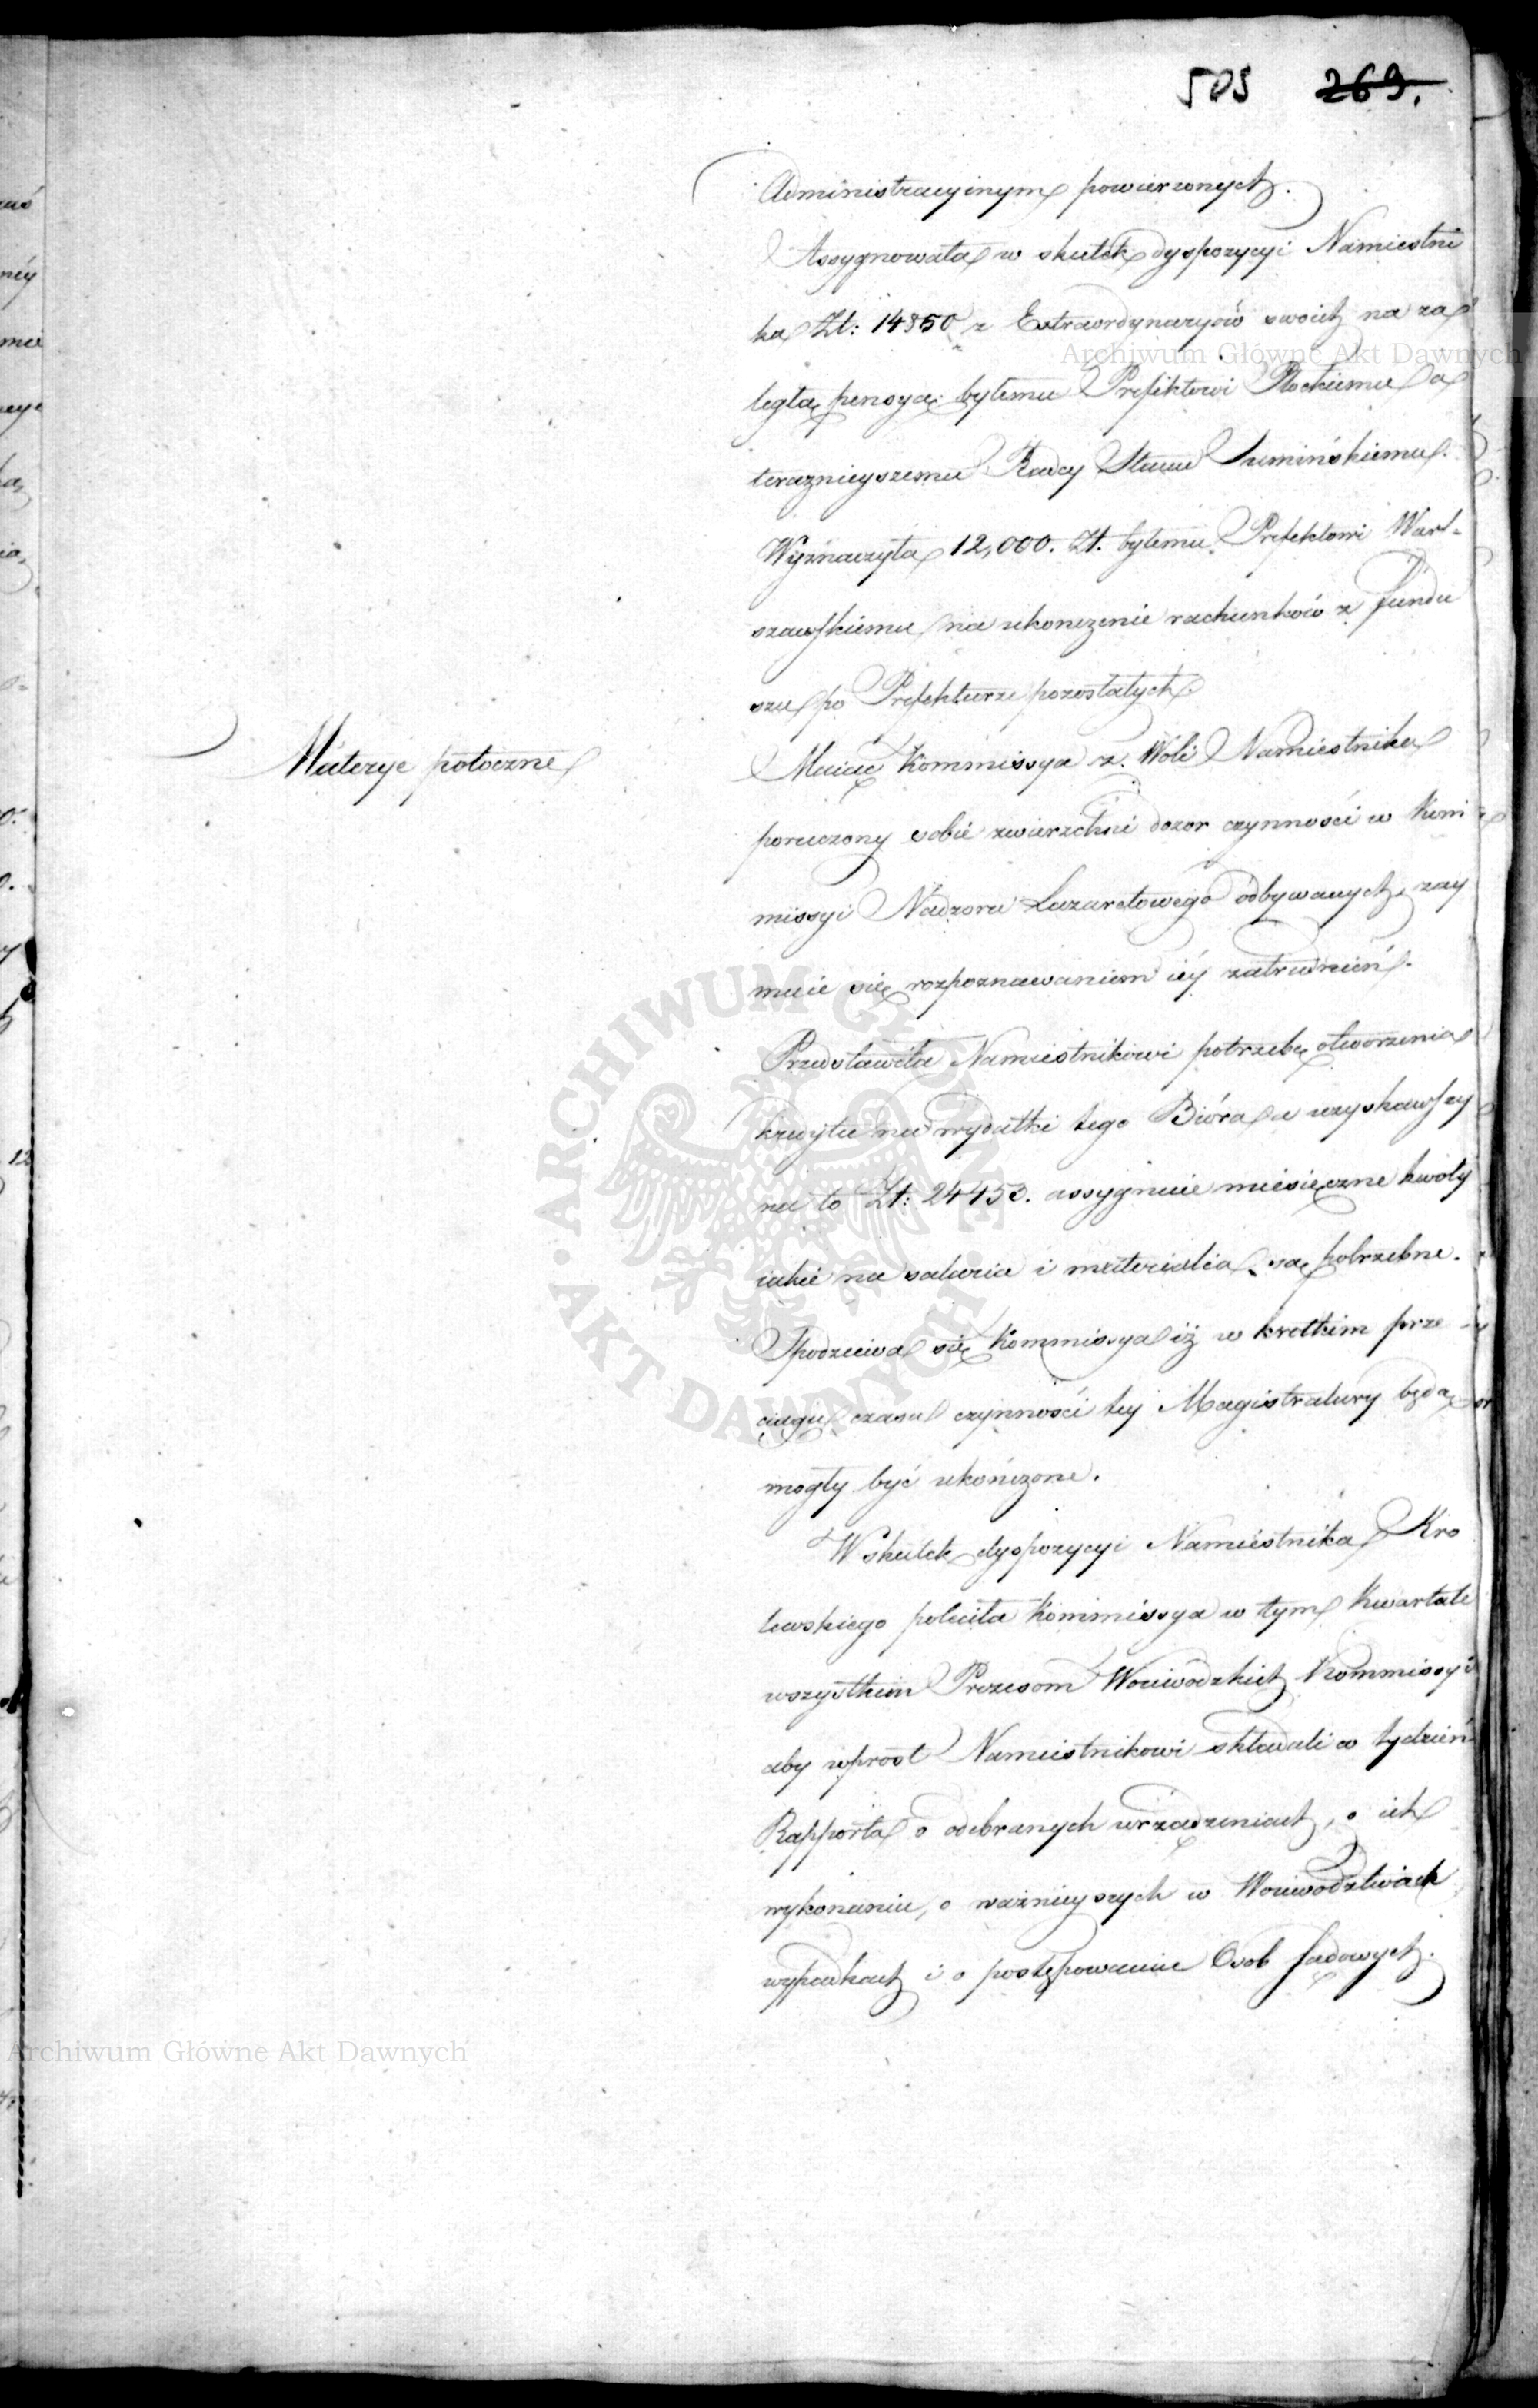 505 269.
Administracyinym powierzonych.
Assygnowała w skutek dyspozycyi Namiestni
ka Zł: 14350 z Extraordynaryów swoich na za
ległą pensyą byłemu Prefektowi Płockiemu a
teraznieyszemu Radcy Stanu Sumińskiemu.
Wyznaczyła 12,000. Zł. byłemu Prefektowi War-
szawskiemu na ukonczenie rachunków z fundu
szu po Prefekturze pozostałych.
Materye potoczne
Maiąc Kommissya z Woli Namiestnika
poruczony sobie zwierzchni dozor czynności w Kom
missyi Nadzoru Lazaretowego odbywanych, zay
muie się rozpoznawaniem iéy zatrudnień.
Przedstawiła Namiestnikowi potrzebę otworzenia
kredytu na wydatki tego Bióra a uzyskawszy
na to Zł: 24453. assygnuie miesięczne kwoty
iakie na salaria i materialia są potrzebne.
Spodziewa się Kommissya iż w krotkim prze
ciągu czasu czynności tey Magistratury będą
mogły być ukończone.
W skutek dyspozycyi Namiestnika Kro
lewskiego poleciła Kommissya w tym Kwartale
wszystkim Prezesom Woiewodzkich Kommissyi
aby wprost Namiestnikowi składali co tydzień
Rapporta o odebranych urządzeniach, o ich
wykonaniu, o ważnieyszych w Woiewodztwach
wypadkach i o postępowaniu Osob sądowych.
Archiwum Główne Akt Dawnych
ARCHIWUM GŁÓWNE AKT DAWNYCH
Archiwum Główne Akt Dawnych